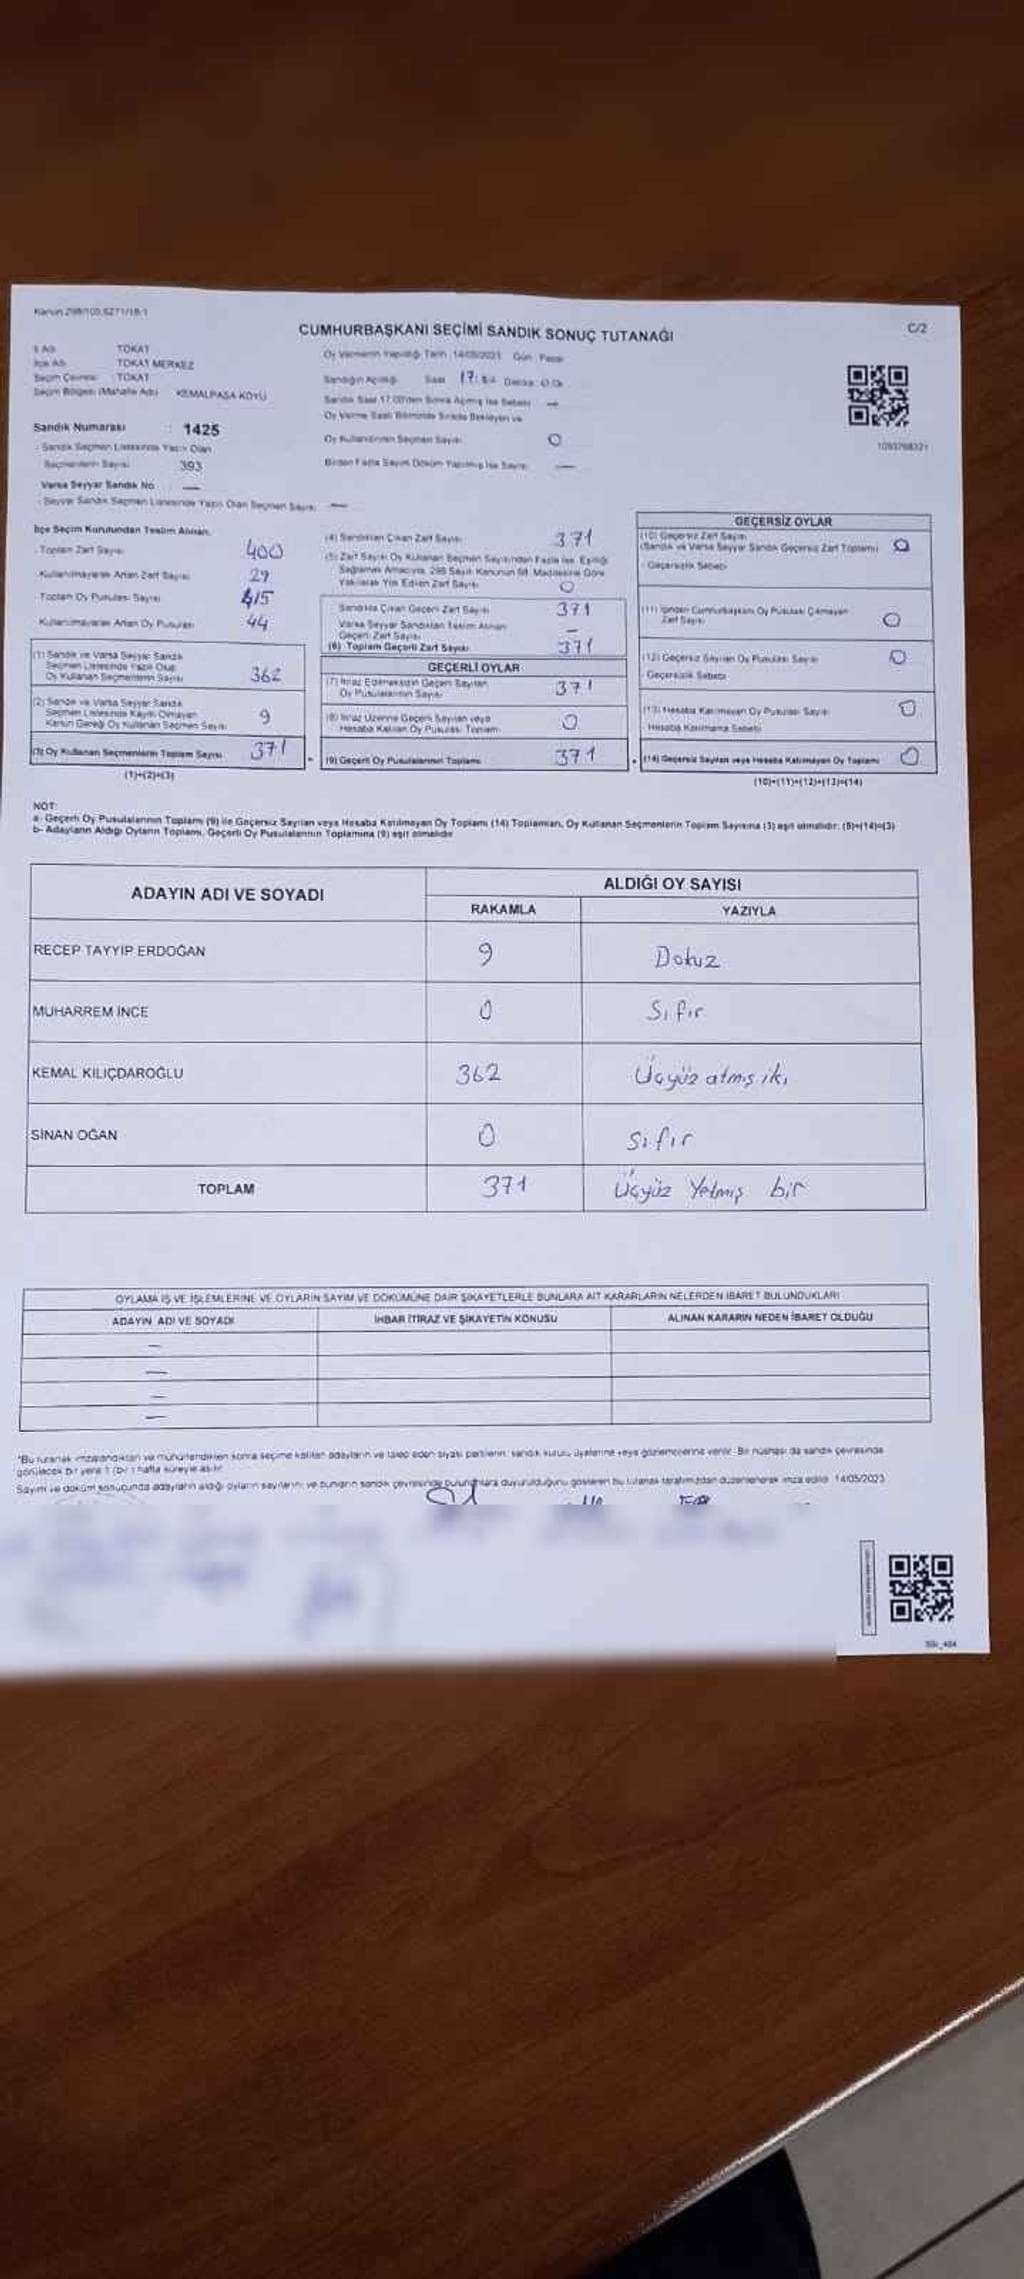 Kanun 298/105,6271/18-1
C/2
CUMHURBAŞKANI SEÇİMİ SANDIK SONUÇ TUTANAĞI
İl Adı TOKAT
İlçe Adı TOKAT MERKEZ
Seçim Çevresi TOKAT
Seçim Bölgesi (Mahalle Adı) KEMALPAŞA KÖYÜ
Sandık Numarası : 1425
- Sandık Seçmen Listesinde Yazılı Olan
Seçmenlerin Sayısı 393
Varsa Seyyar Sandık No —
- Seyyar Sandık Seçmen Listesinde Yazılı Olan Seçmen Sayısı —
Oy Vermenin Yapıldığı Tarih 14/05/2023 Gün Pazar
Sandığın Açıldığı Saat 17:
Sandık Saat 17.00'den Sonra Açılmış İse Sebebi —
Oy Verme Saati Bitiminde Sırada Bekleyen ve
Oy Kullandırılan Seçmen Sayısı 0
Birden Fazla Sayım Döküm Yapılmış İse Sayısı —
İlçe Seçim Kurulundan Teslim Alınan
- Toplam Zarf Sayısı 400
- Kullanılmayarak Artan Zarf Sayısı 29
- Toplam Oy Pusulası Sayısı 415
- Kullanılmayarak Artan Oy Pusulası 44
(1) Sandık ve Varsa Seyyar Sandık
Seçmen Listesinde Yazılı Olup
Oy Kullanan Seçmenlerin Sayısı 362
(2) Sandık ve Varsa Seyyar Sandık
Seçmen Listesinde Kaydı Olmayan
Kanun Gereği Oy Kullanan Seçmen Sayısı 9
(3) Oy Kullanan Seçmenlerin Toplam Sayısı 371
(1)+(2)=(3)
(4) Sandıktan Çıkan Zarf Sayısı 371
(5) Zarf Sayısı Oy Kullanan Seçmen Sayısından Fazla İse, Eşitliği
Sağlamak Amacıyla, 298 Sayılı Kanunun 98. Maddesine Göre
Yakılarak Yok Edilen Zarf Sayısı 0
Sandıkta Çıkan Geçerli Zarf Sayısı 371
Varsa Seyyar Sandıktan Teslim Alınan
Geçerli Zarf Sayısı —
(6) Toplam Geçerli Zarf Sayısı 371
GEÇERLİ OYLAR
(7) İtiraz Edilmeksizin Geçerli Sayılan
Oy Pusulalarının Sayısı 371
(8) İtiraz Üzerine Geçerli Sayılan veya
Hesaba Katılan Oy Pusulası Toplamı 0
(9) Geçerli Oy Pusulalarının Toplamı 371
GEÇERSİZ OYLAR
(10) Geçersiz Zarf Sayısı
(Sandık ve Varsa Seyyar Sandık Geçersiz Zarf Toplamı) 0
- Geçersizlik Sebebi
(11) İçinden Cumhurbaşkanı Oy Pusulası Çıkmayan
Zarf Sayısı 0
(12) Geçersiz Sayılan Oy Pusulası Sayısı 0
- Geçersizlik Sebebi
(13) Hesaba Katılmayan Oy Pusulası Sayısı 0
- Hesaba Katılmama Sebebi
(14) Geçersiz Sayılan veya Hesaba Katılmayan Oy Toplamı 0
(10)+(11)+(12)+(13)=(14)
NOT:
a- Geçerli Oy Pusulalarının Toplamı (9) ile Geçersiz Sayılan veya Hesaba Katılmayan Oy Toplamı (14) Toplamları, Oy Kullanan Seçmenlerin Toplam Sayısına (3) eşit olmalıdır: (9)+(14)=(3)
b- Adayların Aldığı Oyların Toplamı, Geçerli Oy Pusulalarının Toplamına (9) eşit olmalıdır.
ADAYIN ADI VE SOYADI ALDIĞI OY SAYISI
RAKAMLA YAZIYLA
RECEP TAYYİP ERDOĞAN 9 Dokuz
MUHARREM İNCE 0 Sıfır
KEMAL KILIÇDAROĞLU 362 Üçyüz atmış iki
SİNAN OĞAN 0 Sıfır
TOPLAM 371 Üçyüz Yetmiş bir
OYLAMA İŞ VE İŞLEMLERİNE VE OYLARIN SAYIM VE DÖKÜMÜNE DAİR ŞİKAYETLERLE BUNLARA AİT KARARLARIN NELERDEN İBARET BULUNDUKLARI
ADAYIN ADI VE SOYADI İHBAR İTİRAZ VE ŞİKAYETİN KONUSU ALINAN KARARIN NEDEN İBARET OLDUĞU
—
—
—
—
*Bu tutanak imzalandıktan ve mühürlendikten sonra seçime katılan adayların ve talep eden siyasi partilerin; sandık kurulu üyelerine veya gözlemcilerine verilir. Bir nüshası da sandık çevresinde
görülecek bir yere 1 (bir) hafta süreyle asılır.
Sayım ve döküm sonucunda adayların aldığı oyların sayılarını ve bunların sandık çevresinde bulunanlara duyurulduğunu gösteren bu tutanak tarafımızdan düzenlenerek imza edildi. 14/05/2023